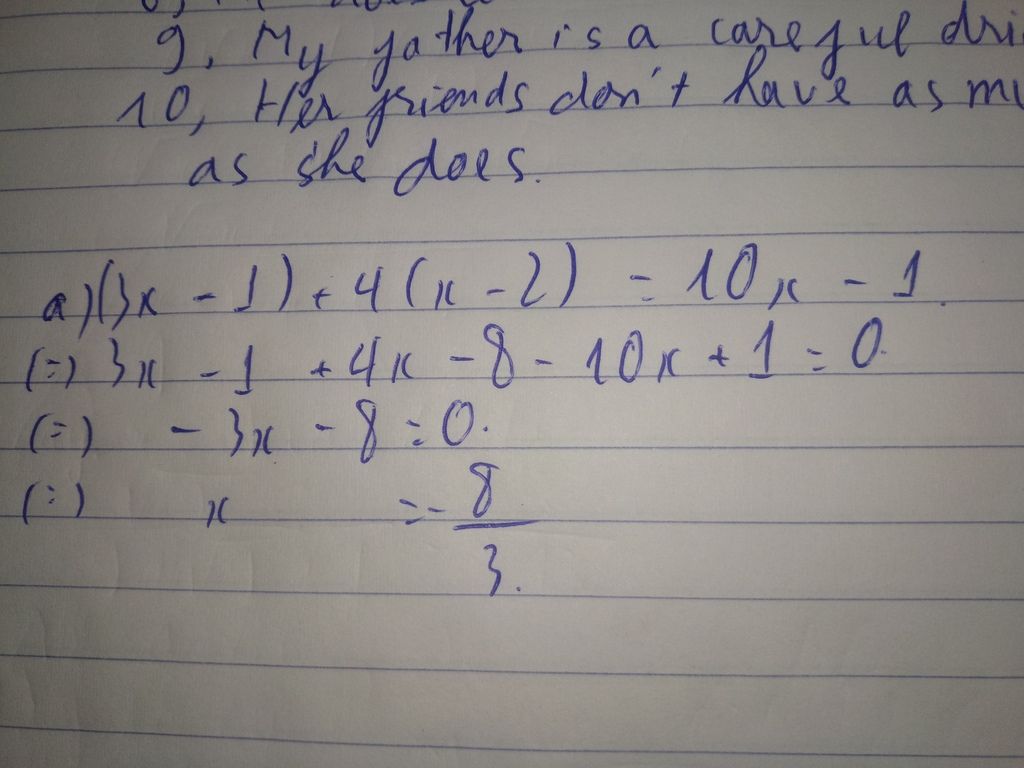 9, My father is a careful
10, Her friends don't have as
as she does.
a) (3x - 1) + 4(x - 2) = 10x - 1.
(=) 3x - 1 + 4x - 8 - 10x + 1 = 0.
(=) - 3x - 8 = 0.
(=) x = - 8/3.